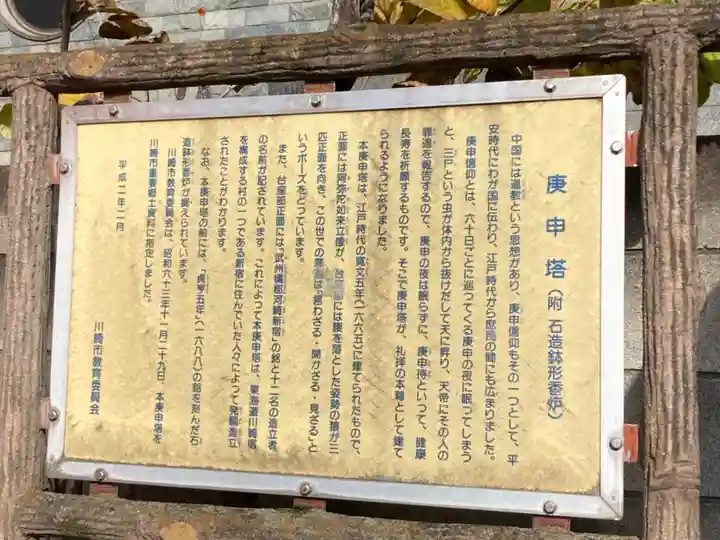 庚申塔(附 石造鉢形香炉)
中国には道教という思想があり、庚申信仰もその一つとして、平
安時代にわが国に伝わり、江戸時代から庶民の間にも広まりました。
庚申信仰とは、六十日ごとに巡ってくる庚申の夜に眠ってしまう
と、三尸という虫が体内から抜けだして天に昇り、天帝にその人の
罪過を報告するので、庚申の夜は眠らずに、庚申待といって、健康
長寿を祈願するものです。そこで庚申塔が、礼拝の本尊として建て
られるようになりました。
本庚申塔は、江戸時代の寛文五年(一六六五)に建てられたもので、
正面には阿弥陀如来立像が、台座部には腰を落とした姿勢の猿が三
匹正面を向き、この世での悪事は「言わざる・聞かざる・見ざる」と
いうポーズをとっています。
また、台座部正面には「武州橘郡河崎新宿」の銘と十二名の造立者
の名前が記されています。これによって本庚申塔は、東海道川崎宿
を構成する村の一つである新宿に住んでいた人々によって発願造立
されたことがわかります。
なお、本庚申塔の前には、「貞享五年」(一六八八)の銘を刻んだ石
造鉢形香炉が据えられています。
川崎市教育委員会は、昭和六十三年十一月二十九日、本庚申塔を
川崎市重要郷土資料に指定しました。
平成二年二月
川崎市教育委員会